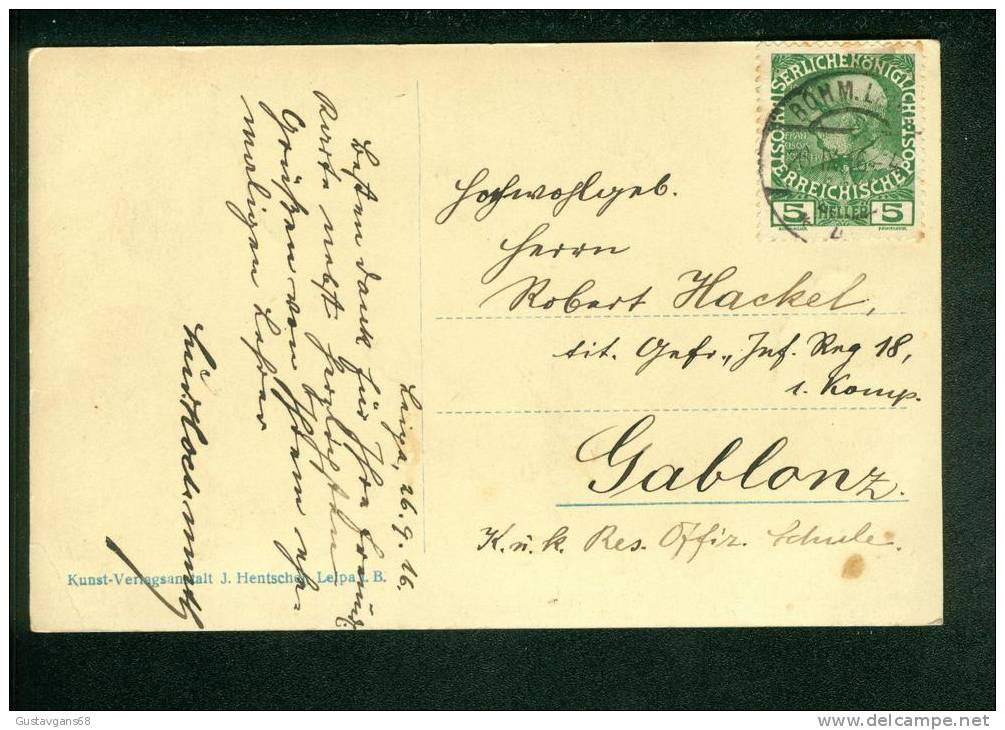 Leipa, 26.9.16.
Besten Dank für Ihre freundl.
Karte nebst herzlichsten
Grüßen von Ihrem ehe-
maligen Lehrer
Hochwohlgeb.
Herrn
Robert Hackel,
tit. Gefr., Inf. Reg 18,
1. Komp.
Gablonz.
K. u. k. Res. Offiz. Schule.
Kunst-Verlagsanstalt J. Hentschel, Leipa i. B.
KAISERLICHE KÖNIGLICHE
ÖSTERREICHISCHE POST
5 HELLER 5
BÖHM. L
Gustavgans68
www.delcampe.net